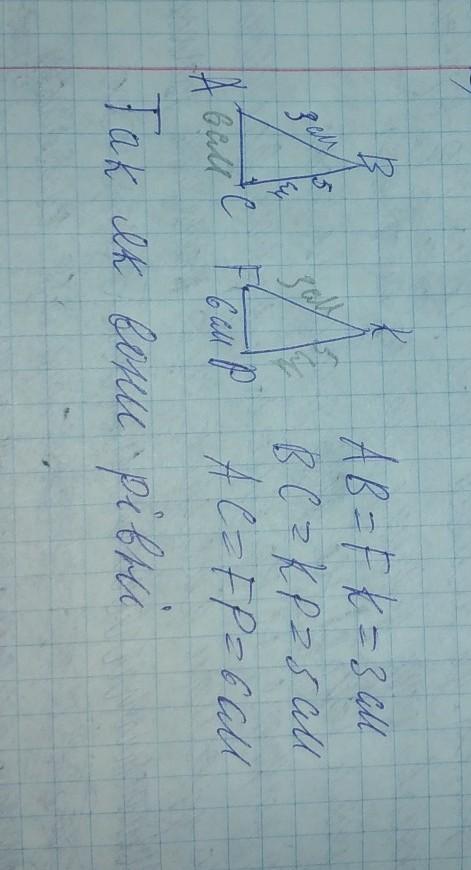 B
3 см
5 см
A
6 см
C
K
3 см
5 см
F
6 см
P
AB=FK=3 см
BC=KP=5 см
AC=FP=6 см
Так як вони рівні